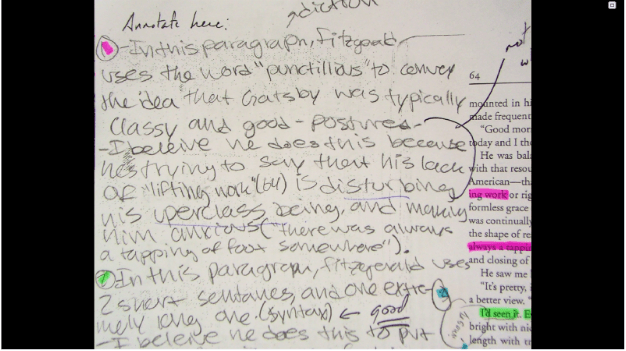 diction
Annotate here:
1 - In this paragraph, Fitzgerald
uses the word "punctillious" to convey
the idea that Gatsby was typically
classy and good-postured.
- I beleive he does this because
he's trying to say that his lack
of "lifting work" (64) is disturbing
his uperclass being, and making
him anxious ("there was always
a tapping of foot somewhere").
2 In this paragraph, Fitzgerald uses
2 short sentances, and one extre-
mely long one. (syntax) ← good
- I beleive he does this to put
not
64
mounted in hi
made frequent
"Good mor
today and I th
He was bal
with that resou
American—th
ing work or rig
formless grace
was continually
the shape of re
always a tappi
and closing of
He saw me
"It's pretty,
a better view. "
I'd seen it. E
bright with nic
length with t